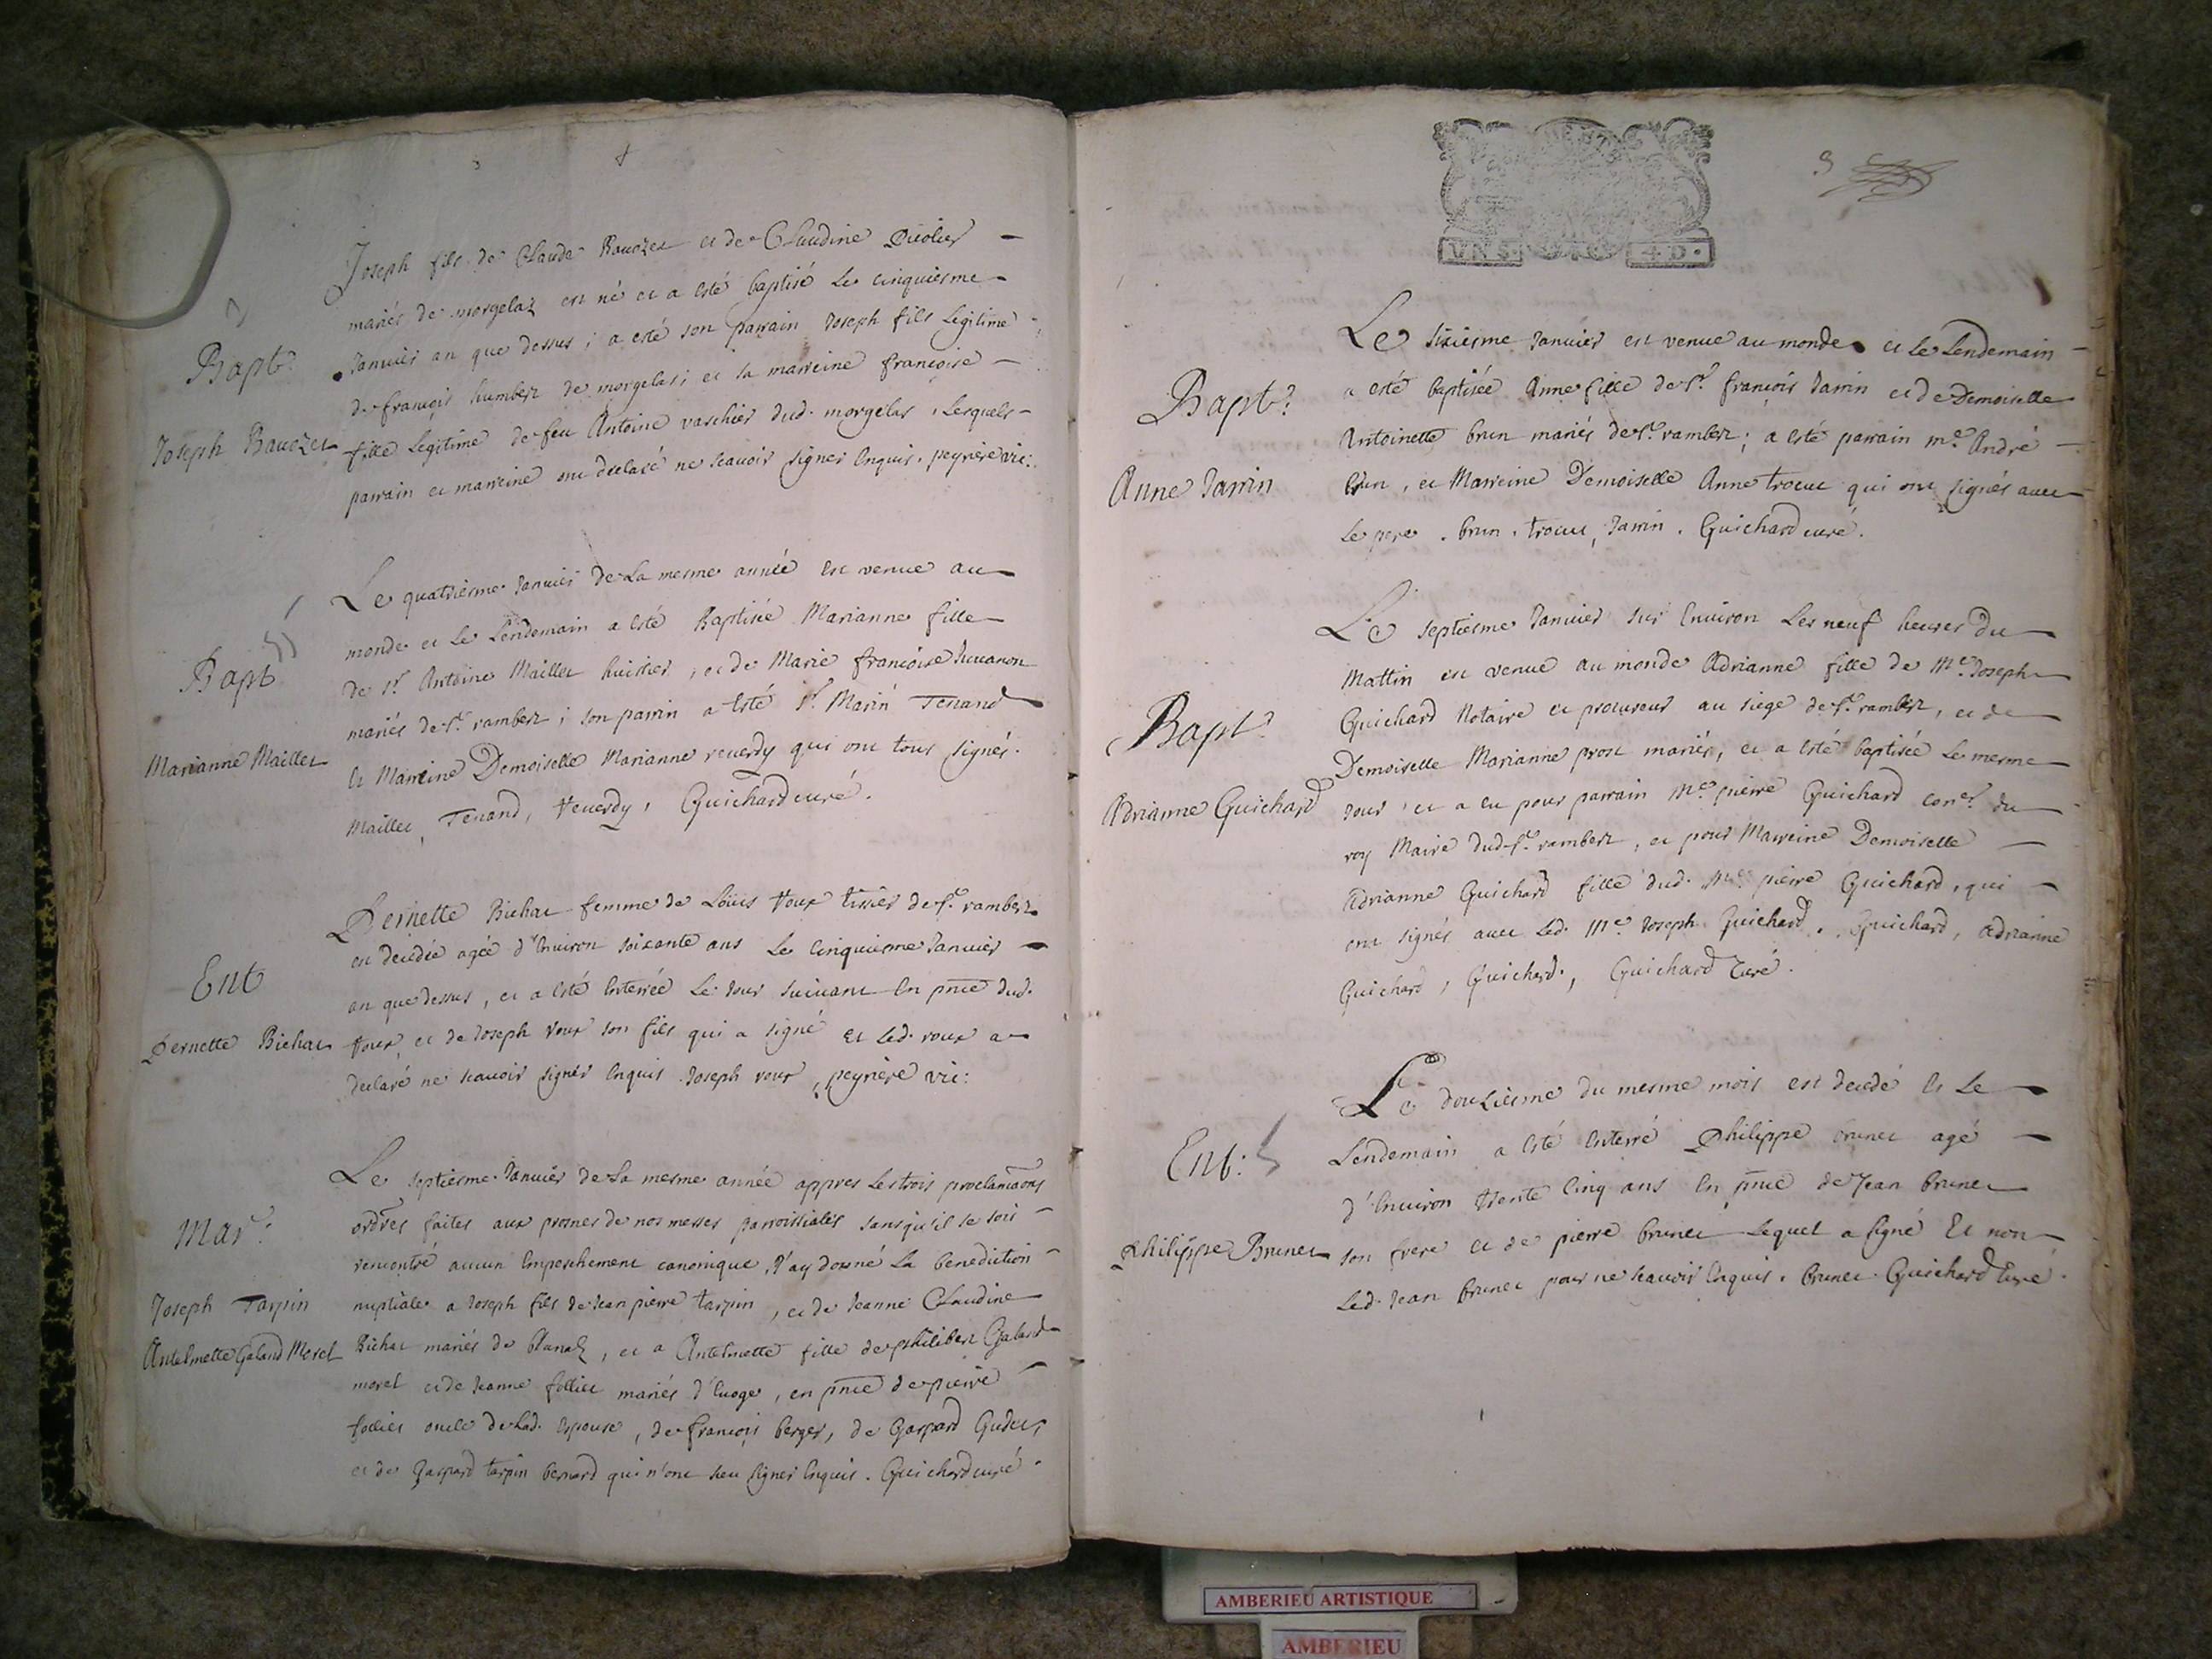 Joseph fils de Claude Bauozet et de Claudine
mariés de morgelaz est né et a esté baptisé le cinquiesme
Bapt.
Janvier an que dessus ; a esté son parrain Joseph fils legitime
de françois humbert de morgelas ; et sa marreine françoise
Joseph
fille legitime de feu Antoine vaschier dud. morgelas, lesquels
parrain et marreine ont declaré ne scauoir signer enquis. peyriere vic:
Le quatriesme Janvier de la mesme année est venue au
monde et le Lendemain a esté Baptisée Marianne fille
Bapt
de Sr. Antoine Maillet huissier, et de Marie françoise
mariés de St. rambert ; son parrin a esté Sr. Marin Tenand
Marianne Maillet
et Marreine Demoiselle Marianne reuerdy qui ont tous signés.
Maillet, Tenand, reuerdy, Guichard curé.
Pernette Bichat femme de Louis roux tissier de St. rambert
est decedée agée d'enuiron soixante ans le cinquiesme Janvier
Ent
an que dessus, et a esté enterrée le jour suiuant en pnce dud.
Pernette Bichat
roux, et de Joseph roux son fils qui a signé et led. roux a
declaré ne scauoir signer enquis. Joseph roux, peyriere vic:
Le septiesme Janvier de la mesme année appres les trois proclamaons
ordres faites aux prosnes de nos messes parroissiales sans qu'il se soit
Mar.
rencontré aucun empeschement canonique, J'ay donné la benediction
Joseph Tarpin
nuptiale a Joseph fils de Jean pierre tarpin, et de Jeanne Claudine
Antelmette Galand Morel
Bichat mariés de blanaz, et a Antelmette fille de philibert Galand
morel et de Jeanne folliet mariés d'euoge, en pnce de pierre
folliet oncle de lad. espouse, de françois berger, de Gaspard Gudet,
et de Gaspard tarpin bernard qui n'ont sceu signer enquis. Guichard curé.
VN S. 4 D.
3
Le sixiesme Janvier est venue au monde et le Lendemain
Bapt:
a esté baptisée Anne fille de Sr. françois Jarrin et de Demoiselle
Antoinette brun mariés de St. rambert ; a esté parrain me. André
Anne Jarrin
brun, et Marreine Demoiselle Anne trocut qui ont signés auec
le pere. brun. trocut, Jarrin. Guichard curé.
Le septiesme Janvier sur enuiron les neuf heures du
Mattin est venue au monde Adrianne fille de Me. Joseph
Bapt.
Guichard Notaire et procureur au siege de St. rambert, et de
Demoiselle Marianne prost mariés, et a esté baptisée le mesme
Adrianne Guichard
jour et a eu pour parrain Me. pierre Guichard coner. du
roy Maire dud. St. rambert, et pour Marreine Demoiselle
Adrianne Guichard fille dud. Me. pierre Guichard, qui
ont signés auec led. Me. Joseph Guichard. Guichard, Adrianne
Guichard, Guichard, Guichard Curé.
Le douziesme du mesme mois est decedé et le
Ent:
Lendemain a esté enterré Philippe brunet agé
d'enuiron trente cinq ans en pnce de Jean brunet
Philippe Brunet
son frere et de pierre brunet lequel a signé Et non
led. Jean brunet pour ne scauoir enquis. brunet. Guichard Curé.
AMBERIEU ARTISTIQUE
AMBERIEU